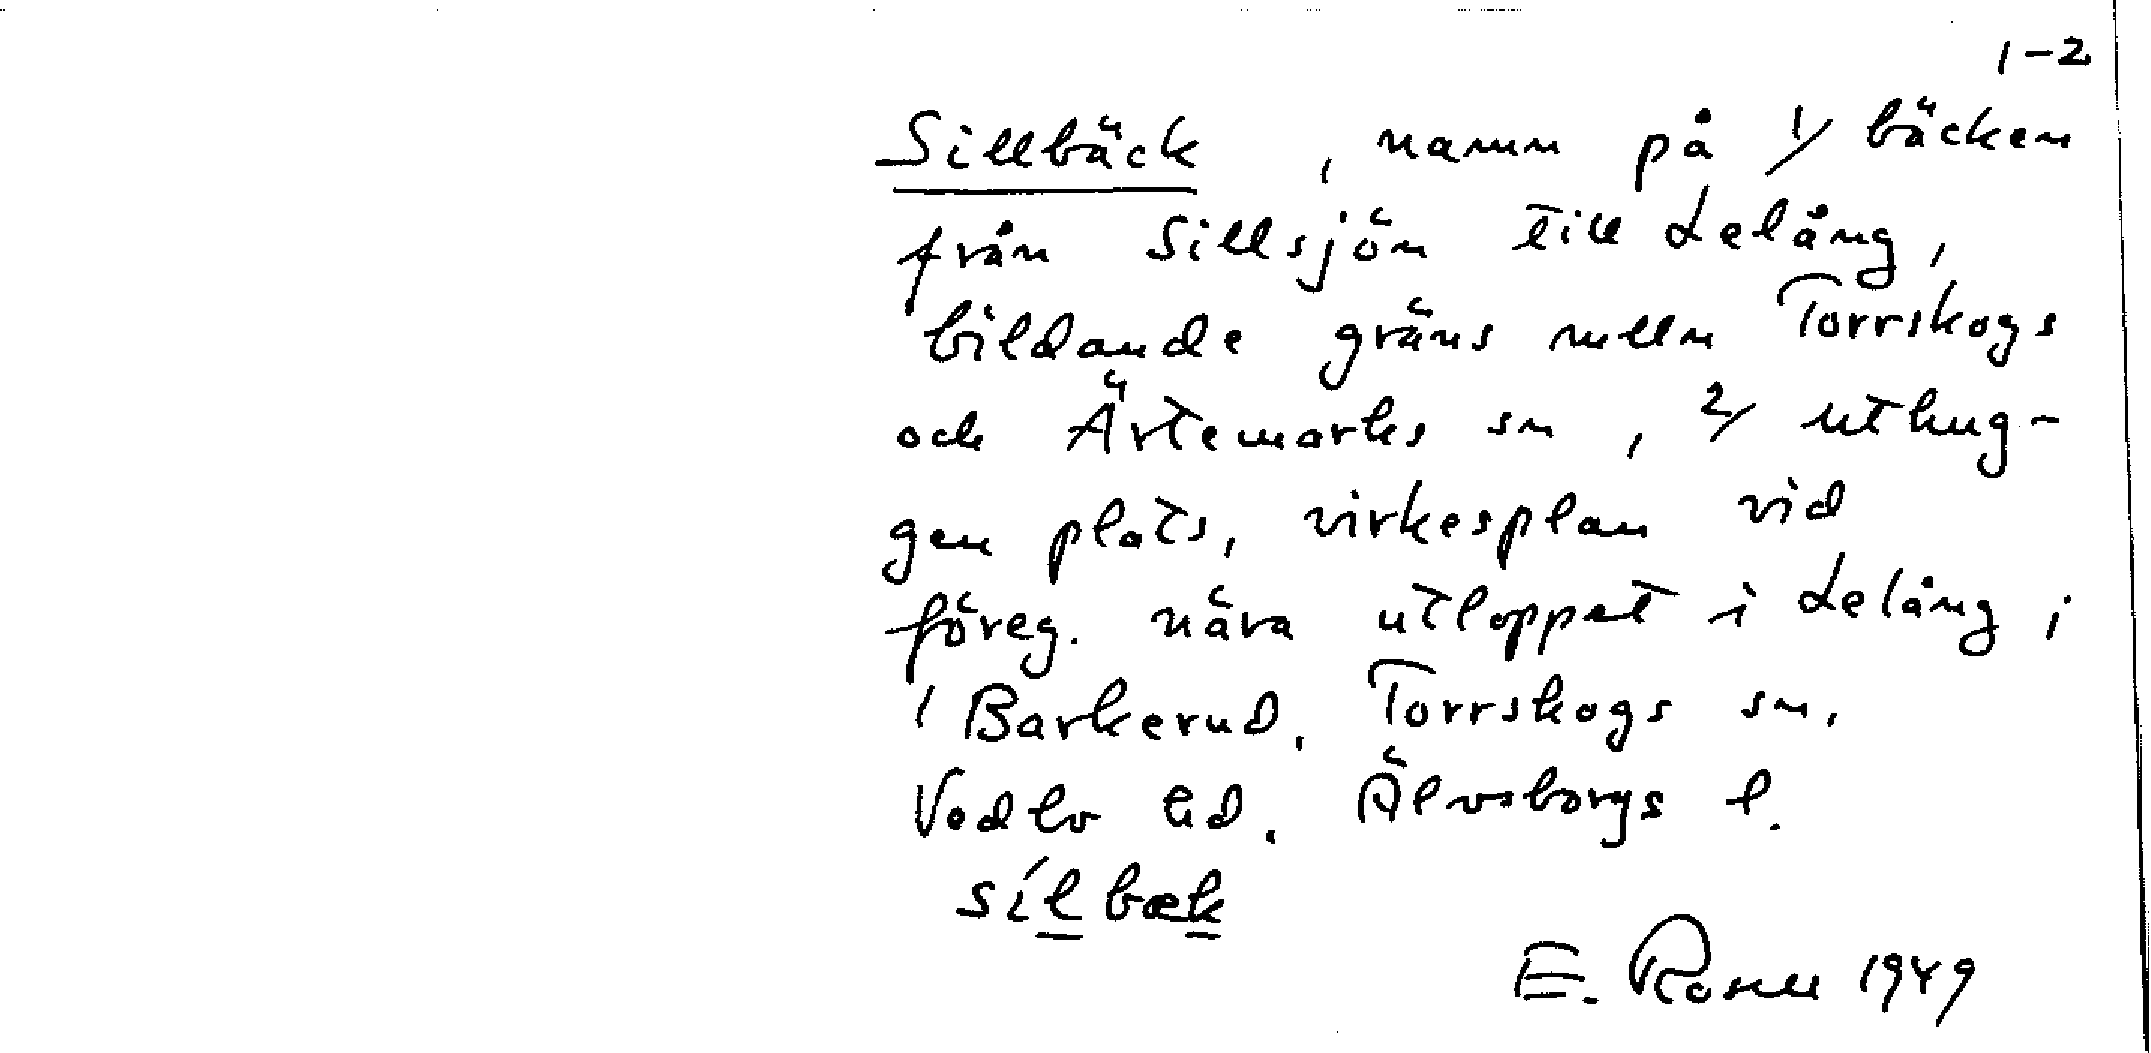 1-2
Sillbäck, namn på 1/ bäcken
från Sillsjön till Lelång,
bildande gräns melln Torrskogs
och Ärtemarks sn, 2/ uthug-
gen plats, virkesplan vid
föreg. nära utloppet i Lelång;
Barkerud, Torrskogs sn.
Vedbo hd. Älvsborgs l.
sílbæk
E. Rosell 1949